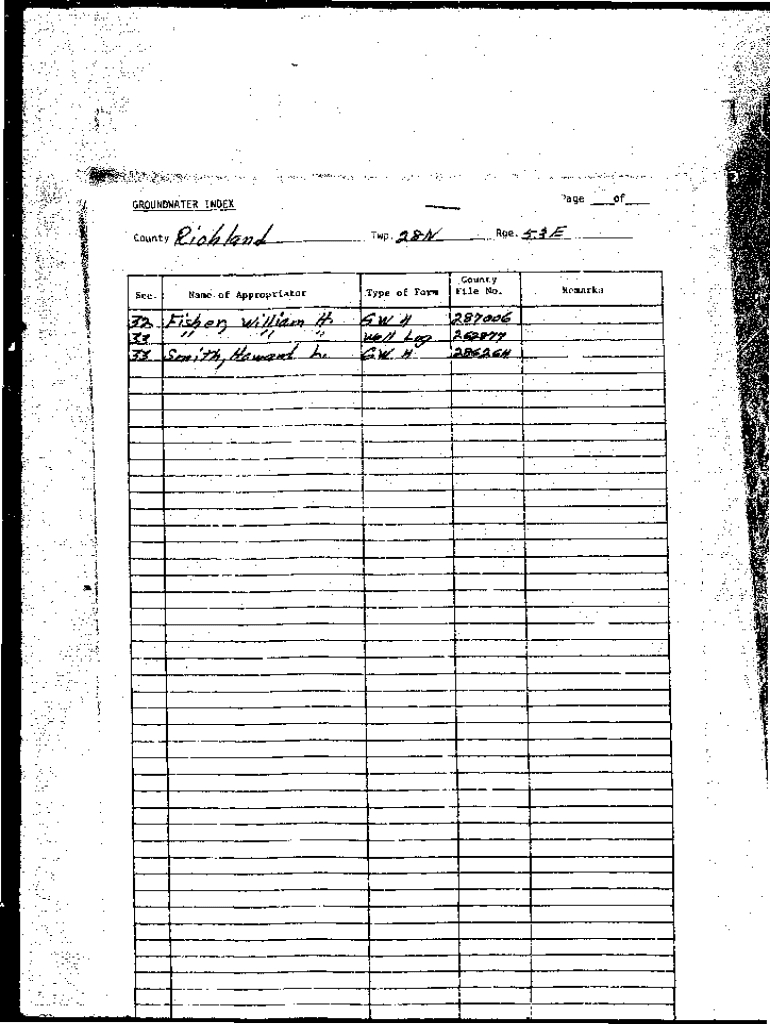 GROUNDWATER INDEX Page ___of___
County Richland Twp. 28N Rge. 53E
Sec. Name of Appropriator Type of Form County File No. Remarks
32 Fisher, William H. GWH 287006
33 " " " Well Log
33 Smith, L. GWH